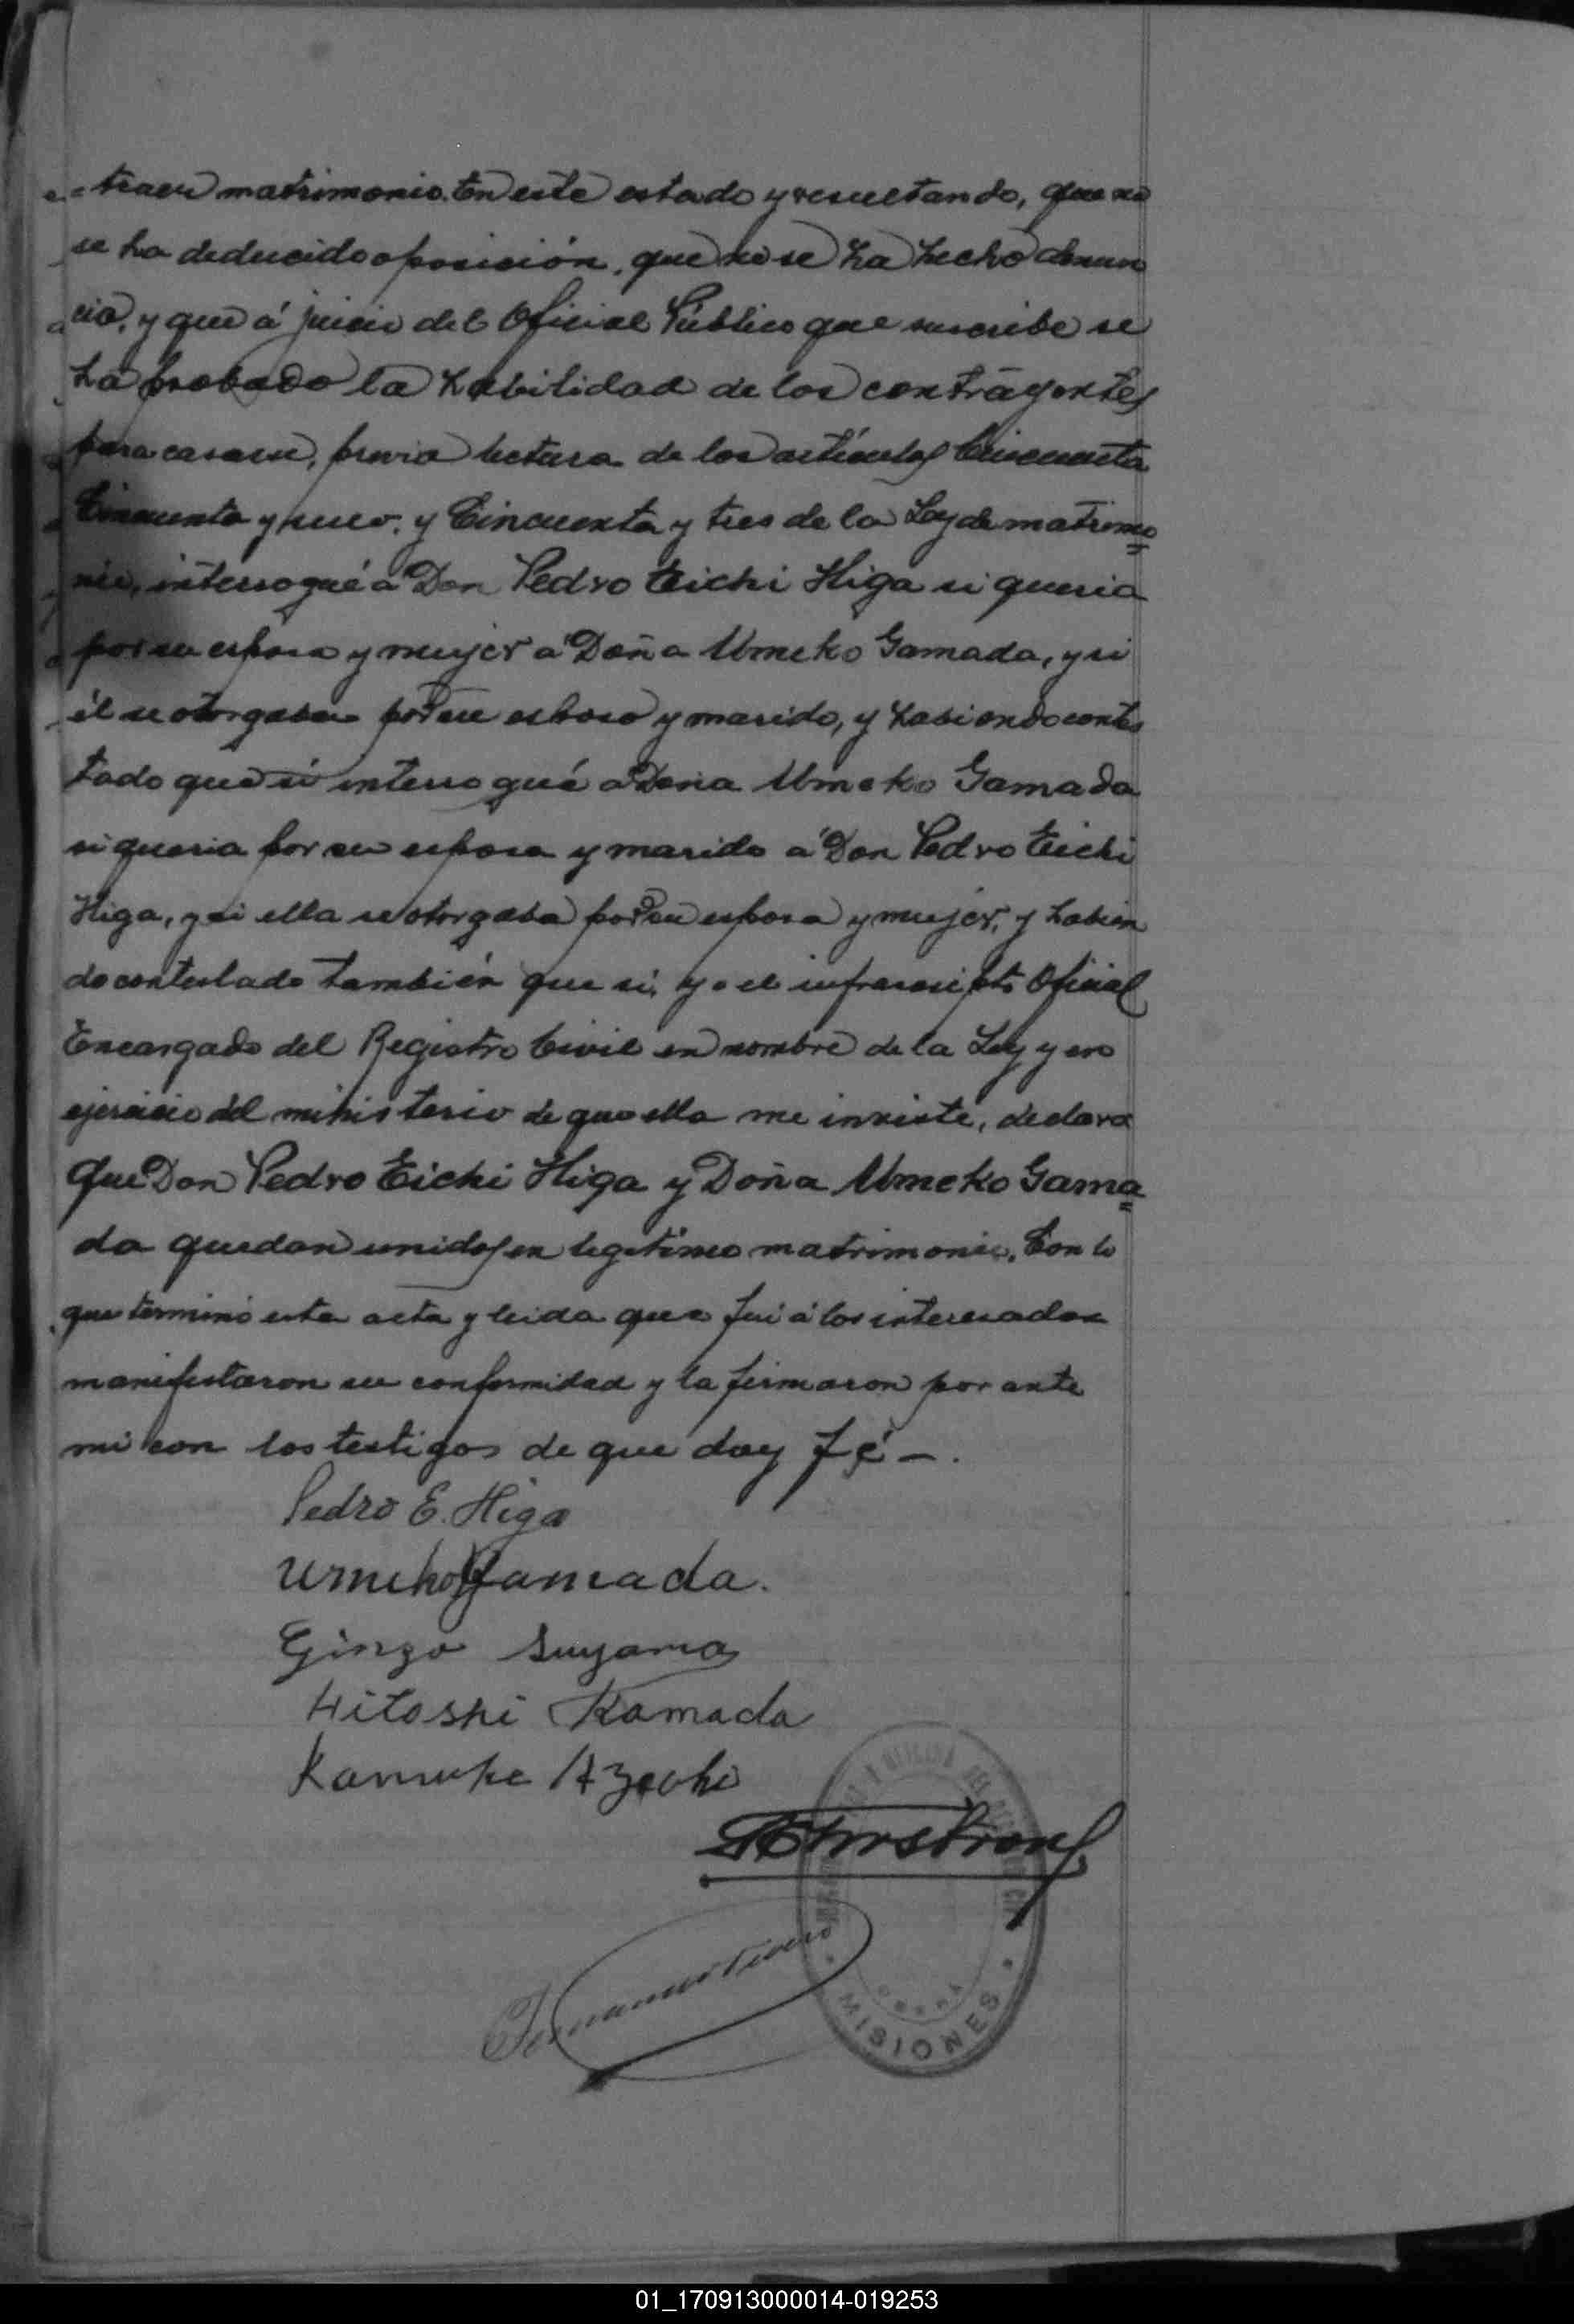 traer matrimonio. En este estado y resultando, que no
se ha deducido oposición, que no se ha hecho denun
cia, y que á juicio del Oficial Público que suscribe se
ha probado la habilidad de los contrayentes
para casarse, previa lectura de los artículos Cincuenta
Cincuenta y nuev. y Cincuenta y tres de la Ley de matrimo
nio, interrogué a Don Pedro Eichi Higa si queria
por su esposa y mujer a Doña Umeko Gamada, y si
él se otorgaba por su esposo y marido, y habiendo contes
tado que si interrogué a Doña Umeko Gamada
si queria por su esposo y marido a Don Pedro Eichi
Higa, y si ella se otorgaba por su esposa y mujer, y habien
do contestado también que si, yo el infrascripto Oficial
Encargado del Registro Civil en nombre de la Ley y en
ejercicio del ministerio de que ella me inviste, declaro
que Don Pedro Eichi Higa y Doña Umeko Gama
da quedan unidos en legitimo matrimonio. Con lo
que terminó esta acta y leida que fué á los interesados
manifestaron su conformidad y la firmaron por ante
mi con los testigos de que doy fé —.
Pedro E. Higa
Umeko Gamada.
Ginzo Suyama
Hitoshi Kamada
Armstrong
MISIONES
01_170913000014-019253